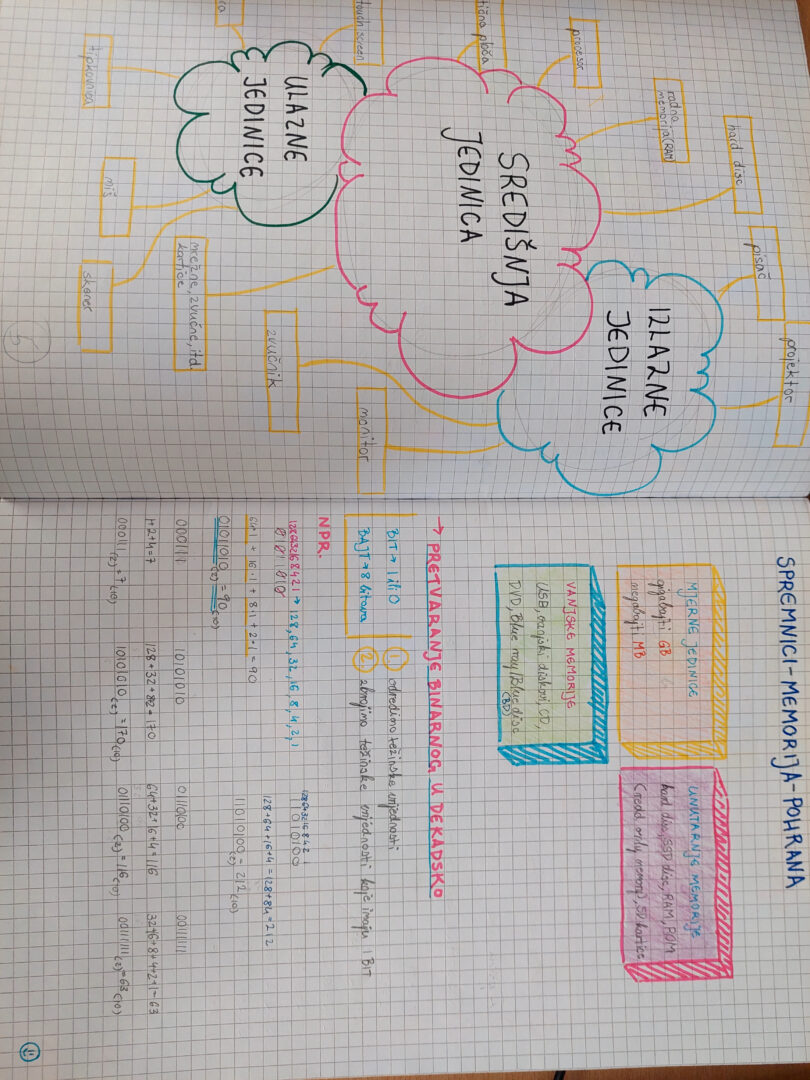 SREDIŠNJA
JEDINICA
ULAZNE
JEDINICE
IZLAZNE
JEDINICE
touch screen
tipkovnica
miš
skener
procesor
radna
memorija (RAM)
hard disc
mrežne, zvučne, itd.
kartice
pisač
projektor
zvučnik
monitor
5
SPREMNICI-MEMORIJA-POHRANA
MJERNE JEDINICE
gigabajti GB
megabajti MB
UNUTARNJE MEMORIJE
hard disc, SSD disc, RAM, ROM
(read only memory), SD kartice
VANJSKE MEMORIJE
USB, vanjski diskovi, CD,
DVD, Blue ray/Blue disc
(BD)
→ PRETVARANJE BINARNOG U DEKADSKO
BIT → 1 ili 0
BAJT → 8 bitova
① odredimo težinske vrijednosti
② zbrojimo težinske vrijednosti koje imaju 1 BIT
NPR.
1286432168421 → 128, 64, 32, 16, 8, 4, 2, 1
01011010
64·1 + 16·1 + 8·1 + 2·1 = 90
01011010(2) = 90(10)
11010100
128+64+16+4 = 128+84 = 212
11010100(2) = 212(10)
000111
1+2+4=7
000111(2) = 7(10)
10101010
10101010(2) = 170(10)
01110100
64+32+16+4=116
01110100(2) = 116(10)
00111111
00111111(2) = 63(10)